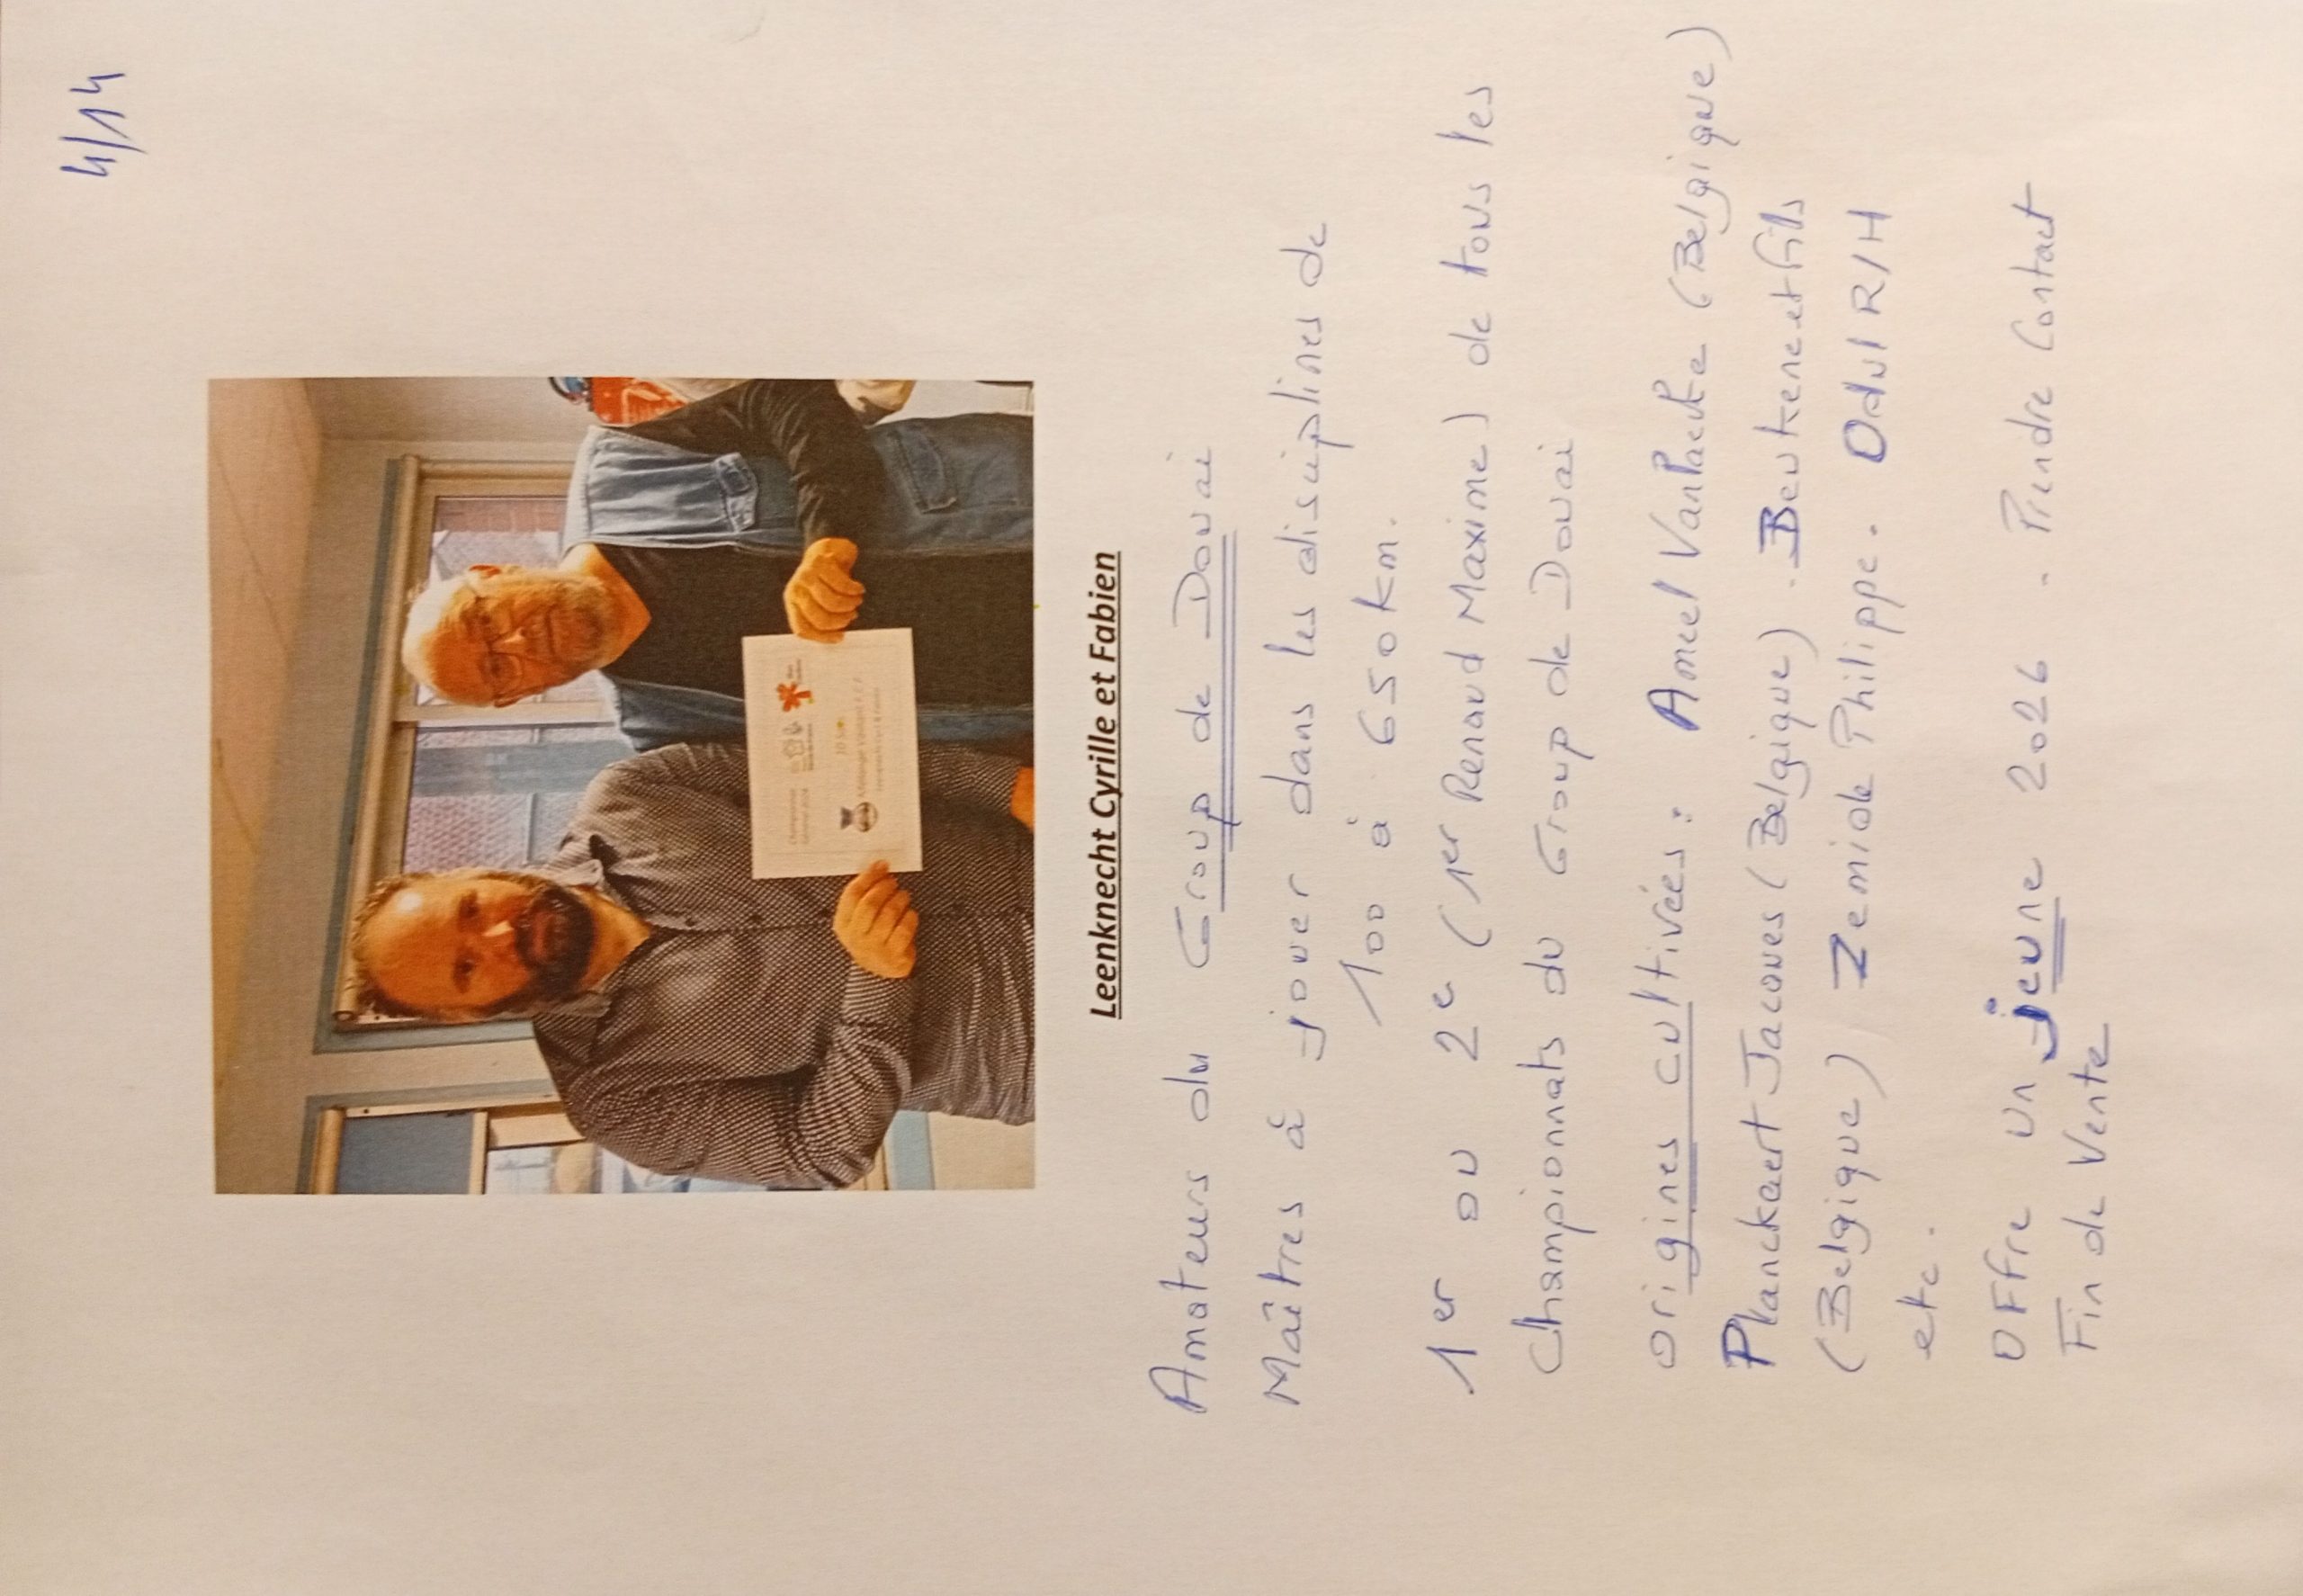 4/14
Leenknecht Cyrille et Fabien
Amateurs du Group de Douai
Maîtres à jouer dans les disciplines de
100 à 650 km.
1er ou 2e (1er Renaud Maxime) de tous les
Championnats du Group de Douai
origines cultivées : Ameel (Belgique)
Planckaert Jacques (Belgique). Beutkenet Fils
(Belgique) Zemide Philippe. R/H
etc.
OFFre un jeune 2026. Prendre Contact
Fin de Vente